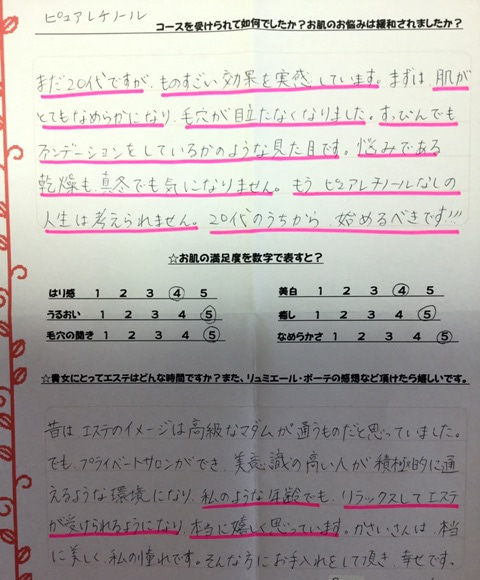 ピュアレチノール
コースを受けられて如何でしたか?お肌のお悩みは緩和されましたか?
まだ20代ですが、ものすごい効果を実感しています。まずは、肌が
とてもなめらかになり、毛穴が目立たなくなりました。すっぴんでも
ファンデーションをしているかのような見た目です。悩みである
乾燥も、真冬でも気になりません。もうピュアレチノールなしの
人生は考えられません。20代のうちから始めるべきです!!!
☆お肌の満足度を数字で表すと?
はり感 1 2 3 4 5 美白 1 2 3 4 5
うるおい 1 2 3 4 5 癒し 1 2 3 4 5
毛穴の開き 1 2 3 4 5 なめらかさ 1 2 3 4 5
☆貴女にとってエステはどんな時間ですか?また、リュミエール・ボーテの感想など頂けたら嬉しいです。
昔は、エステのイメージは高級なマダムが通うものだと思っていました。
でも、プライベートサロンができ、美意識の高い人が積極的に通
えるような環境になり、私のような年齢でも、リラックスしてエステ
が受けられるようになり、本当に嬉しく思っています。かさいさんは、本当
に美しく、私の憧れです。そんな方にお手入れをして頂き、幸せです。